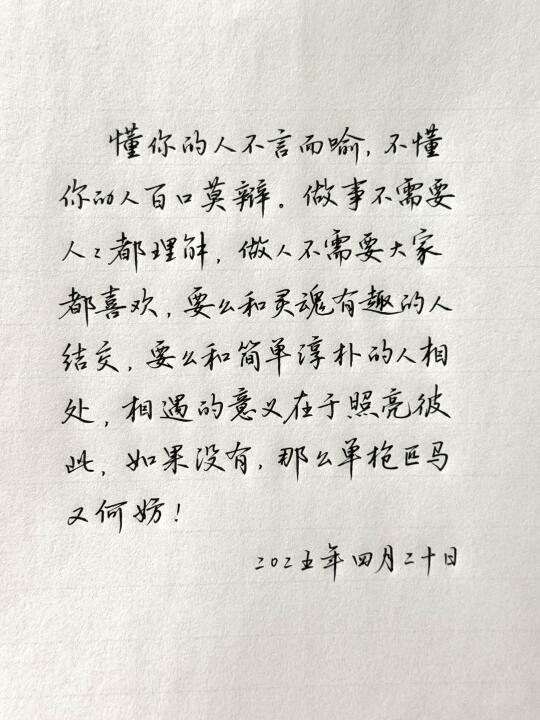 懂你的人不言而喻，不懂
你的人百口莫辩。做事不需要
人々都理解，做人不需要大家
都喜欢，要么和灵魂有趣的人
结交，要么和简单淳朴的人相
处，相遇的意义在于照亮彼
此，如果没有，那么单枪匹马
又何妨！
二〇二五年四月二十日